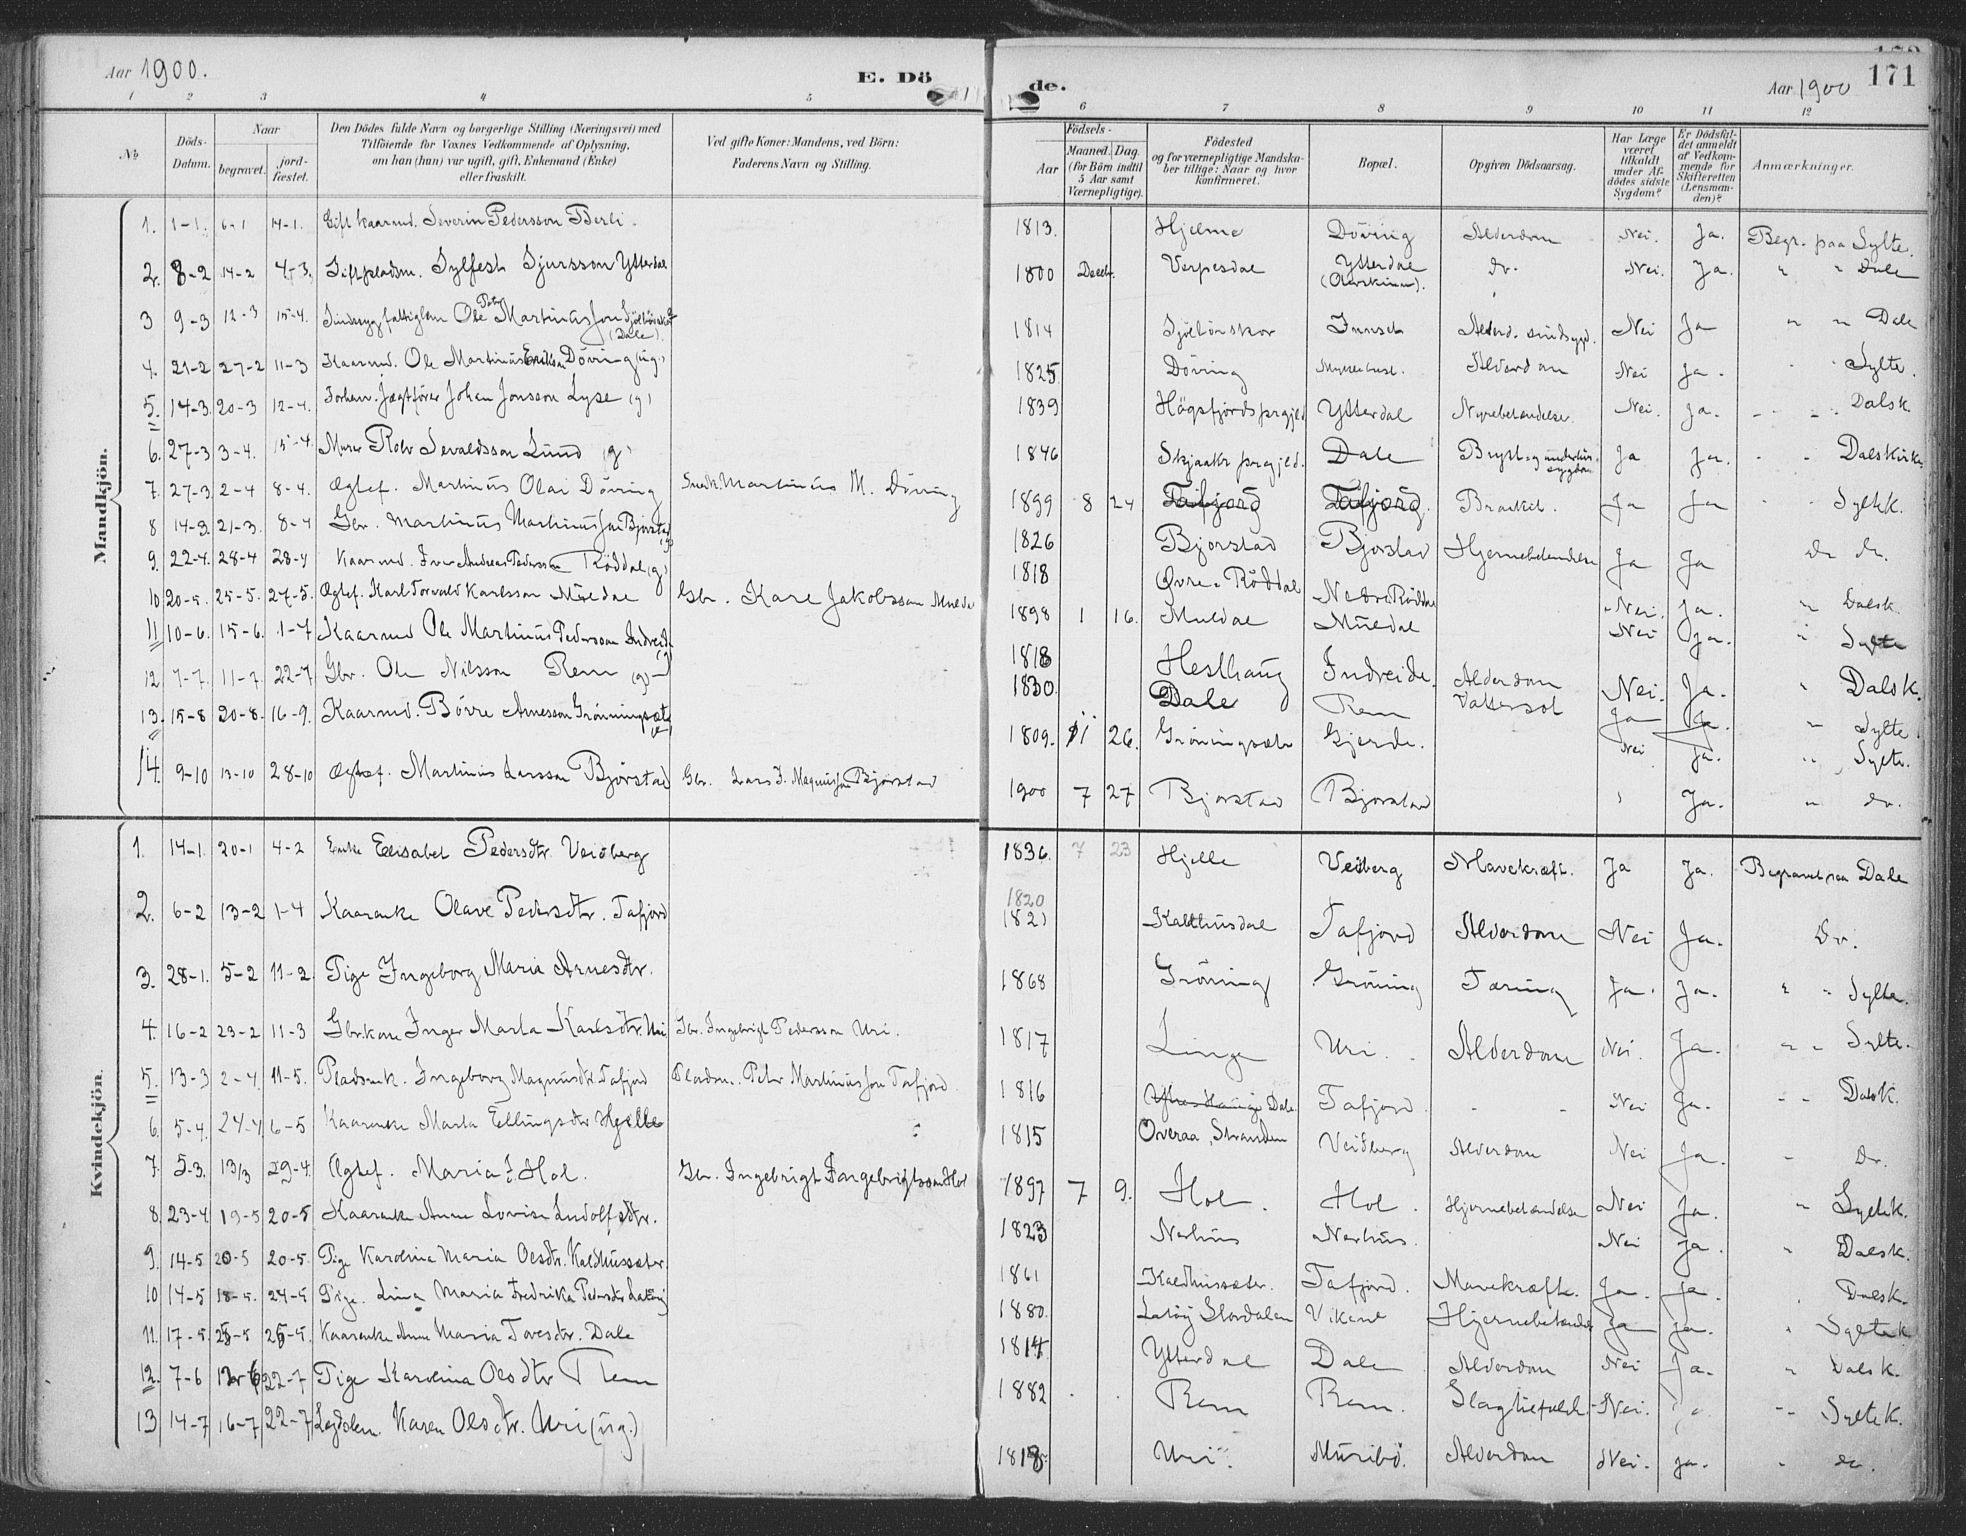 Aar 1900.
E. Dö
de.
Aar 1900
171
1 2 3 4 5
6 7 8 9 10 11 12
No
Döds-Datum.
Naar
begravet.
jord-fæstet.
Den Dödes fulde Navn og borgerlige Stilling (Næringsvei) med
Tilföiende for Voxnes Vedkommende af Oplysning,
om han (hun) var ugift, gift, Enkemand (Enke)
eller fraskilt.
Ved gifte Koner: Mandens, ved Börn:
Faderens Navn og Stilling.
Födsels-
Aar
Maaned. Dag.
(for Börn indtil
5 Aar samt
Værnepligtige).
Födested
og for værnepligtige Mandska-
ber tillige: Naar og hvor
konfirmeret.
Bopæl.
Opgiven Dödsaarsag.
Har Læge
været
tilkaldt
under Af-
dödes sidste
Sygdom?
Er Dödsfal-
det anmeldt
af Vedkom-
mende for
Skifteretten
(Lensman-
den)?
Anmærkninger.
Mandkjön.
1. 1-1. 6-1 14-1. Gift Kaarmd. Severin Pedersson Berli. 1813. Hjelme Döving Alderdom Nei. Ja. Begr. paa Sylte.
2. 8-2 14-2 4-3. Sylfest Sjursson Ytterdal 1800 Verpesdal Ytterdal do. Nei. Ja. " " Dale
3 9-3 12-3 15-4. Ole Petr Martinus (Dale). 1814 Alderd. sindsygd. Nei Ja " " Dale
4. 21-2 27-2 11-3 Kaarmd. Ole Martinus Erikss. Döving (ug.) 1825 Döving Alderdom Nei Ja. " Sylte.
5. 14-3. 20-3 12-4. Forhen. Jægtförer Johan Jonsson Lyse (g) 1839 Högsfjords prgjeld Ytterdal Nyrebetændelse. Nei. Ja. " " Dalsk.
6. 27-3 3-4. 15-4. Murer Rolv Sevaldsson Lund (g) 1846 Skjaak prgjeld. Dale Bryst og underlivs sygdom Ja Ja. " " Dalskirke
7. 27-3. 2-4 8-4. Ægtef. Martinus Olai Döving Snedk. Martinus M. Döving 1899 8 24 Tafjord Tafjord. Bronkit. Ja Ja " Syltek.
8 14-3. 21-3. 8-4 Gbr. Martinus Martinusson Bjorstad (g) 1826 Bjorstad Bjorstad Hjernebetændelse Ja Ja do do.
9. 22-4. 28-4 28-4 Kaarmd. Iver Andreas Pedersson Röddal (g) 1818 Övre-Röddal Nedre Röddal Nei. Ja. " Dalsk.
10. 20-5. 25-5. 27-5. Ægtef. Karl Torvald Karlsson Muldal Gbr. Karl Jakobsson Muldal 1898 1 16. Muldal Muldal Nei Ja. " Sylte
11 10-6. 15-6. 1-7 Kaarmd Ole Martinus Pedersson Indreide (g) 1818 Hesthaug Indreide. Alderdom Nei. Ja. " Dalsk.
12 7-7. 11-7 22-7 Gbr. Ole Nilsson Rem (g) 1830. Dale Rem Vattersot Ja Ja. " Sylte.
13. 15-8 20-8. 16-9. Kaarmd. Bövre Arnesson Gröningsæter 1809. 11 26. Gröningsæter Gjerde. Nei Ja. " Sylte.
14. 9-10 13-10 28-10 Ægtef. Martinus Larsson Bjorstad Gbr. Lars J. Magnusson Bjorstad 1900 7 27 Bjorstad Bjorstad Ja. " do.
Kvindekjön.
1. 14-1. 20-1 4-2 Enke Elisabet Pedersdtr. Veiberg 1836. 7 23 Hjelle Veiberg Mavekræft. Ja Ja. Begravet paa Dale
2. 6-2 13-2 1-4 Kaarenke Olave Pedersdtr. Tafjord 1820 1821 Kaldhusdal Tafjord Alderdom Nei Ja. Do.
3. 28-1. 5-2 11-2. Pige Ingeborg Maria Arnesdtr. 1868 Gröning Gröning Tæring Ja. Ja. " " Sylte.
4. 16-2 23-2 11-3 Gbr.kone Inger Marta Karlsdtr. Uri Gbr. Ingebrigt Pedersson Uri. 1817 Linge Uri. Alderdom Nei. Ja. " " Sylte.
5. 13-3 2-4 11-5. Pladsmk. Ingeborg Magnusdtr Tafjord Pladsm. Petr Martinusson Tafjord. 1816 Dale Tafjord. " " Nei Ja. " " Dalsk.
6. 5-4. 24-4 6-5 Kaarenke Marta Ellingsdtr Hjelle 1815 Overaa, Stranden Veiberg Alderdom Nei Ja. " Do.
7. 5-3. 13/3 29-4. Ægtef. Maria I. Hol. Gbr. Ingebrigt Ingebrigtsson Hol 1897 7 9. Hol. Hol. Hjernebetændelse Nei Ja. " Syltek.
8. 23-4 19-5 20-5 Kaarenke Anne Lovise Ludolfsdtr. 1823 Norhus Norhus. Nei Ja. " Dalsk.
9. 14-5 20-5 20-5. Pige Karolina Maria Olsdtr. Kaldhussæter. 1861 Kaldhussæter. Tafjord. Mavekræft. Ja. Ja. " Dalsk.
10 14-5 18-5. 24-5 Pige. Lina Maria Fredrika Pedersdtr 1880. Stordalen Vikene Hjernebetændelse Ja Ja. " Syltek.
11. 17-5. 25-5 25-5. Kaarenke Anne Maria Toresdtr. Dale 1814 Ytterdal Dale Alderdom Nei Ja. " Dalsk.
12. 7-6 22-7 Pige Karolina Olsdtr Rem 1882 Rem Rem. Slagtilfælde Nei. " " Syltek.
13 14-7 16-7 22-7 Karen Olsdtr. Uri (ug.) 1818 Uri. Muribö. Alderdom Nei. Ja. " do.